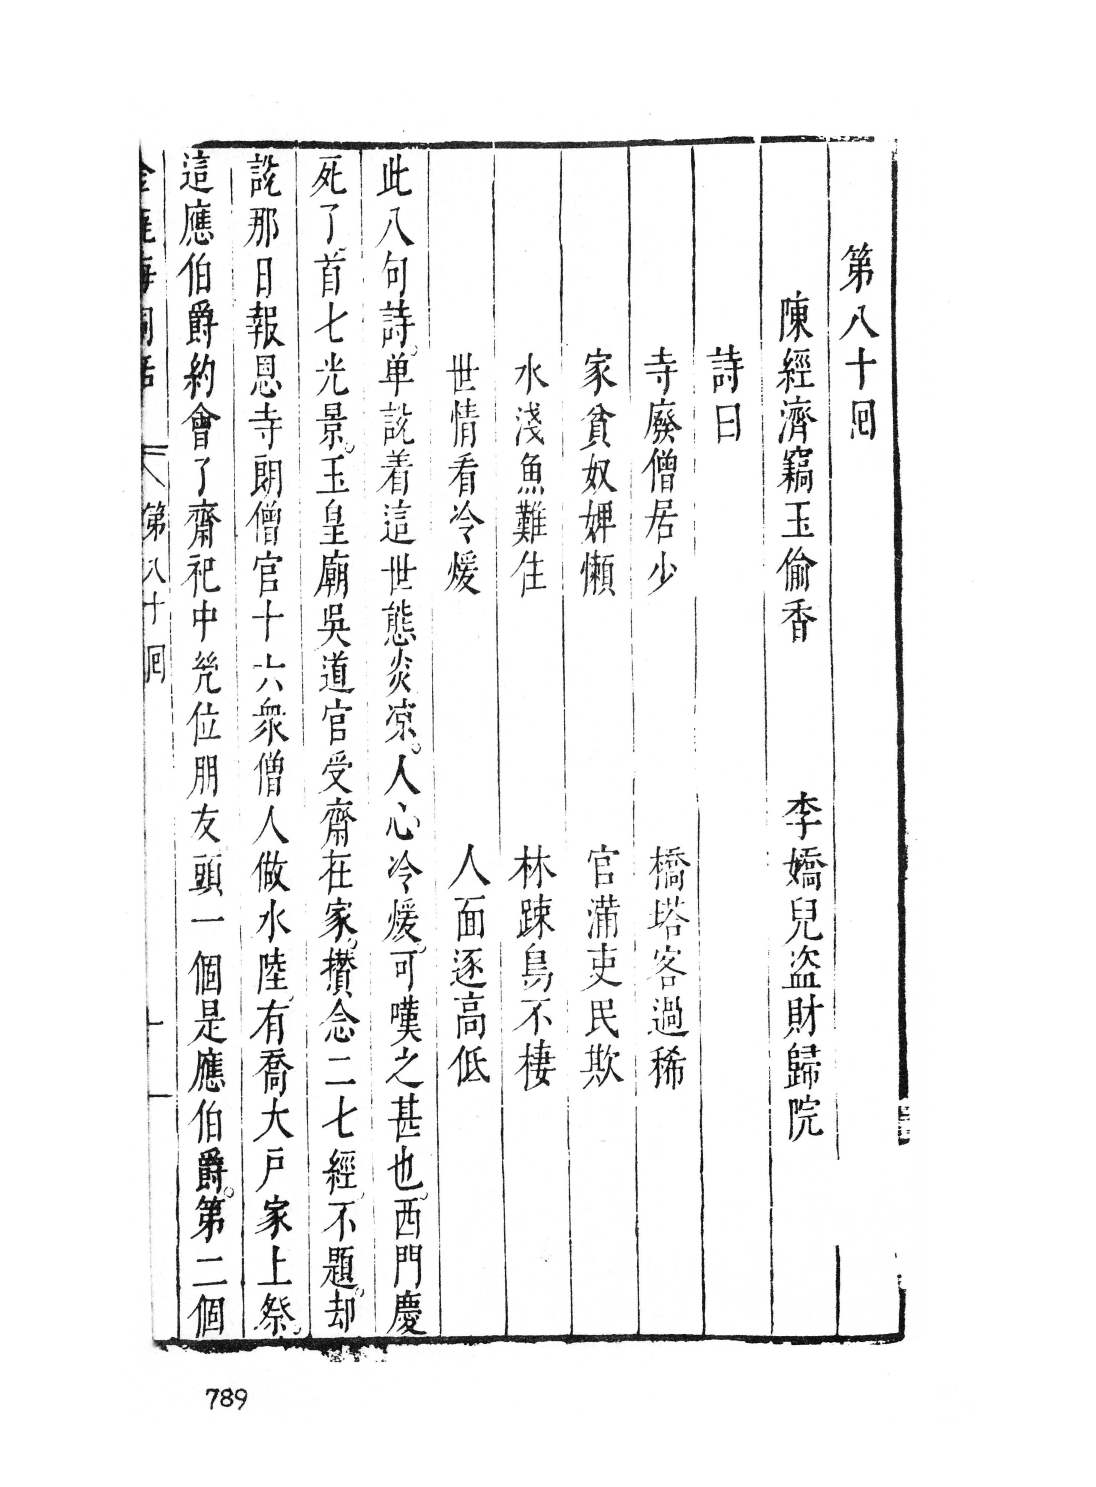 第八十囘
陳經濟竊玉偷香　李嬌兒盜財歸院
詩曰
寺廢僧居少　橋塔客過稀
家貧奴婢懶　官滿吏民欺
水淺魚難住　林踈鳥不棲
世情看冷煖　人面逐高低
此八句詩。单說着這世態炎凉。人心冷煖。可嘆之甚也。西門慶
死了。首七光景。玉皇廟吳道官受齋在家。攢念二七經。不題。却
說那日報恩寺朗僧官十六衆僧人做水陸。有喬大戶家上祭。
這應伯爵約會了齋祀中㡬位朋友頭一個是應伯爵。第二個
金瓶梅詞話　第八十囘　一
789